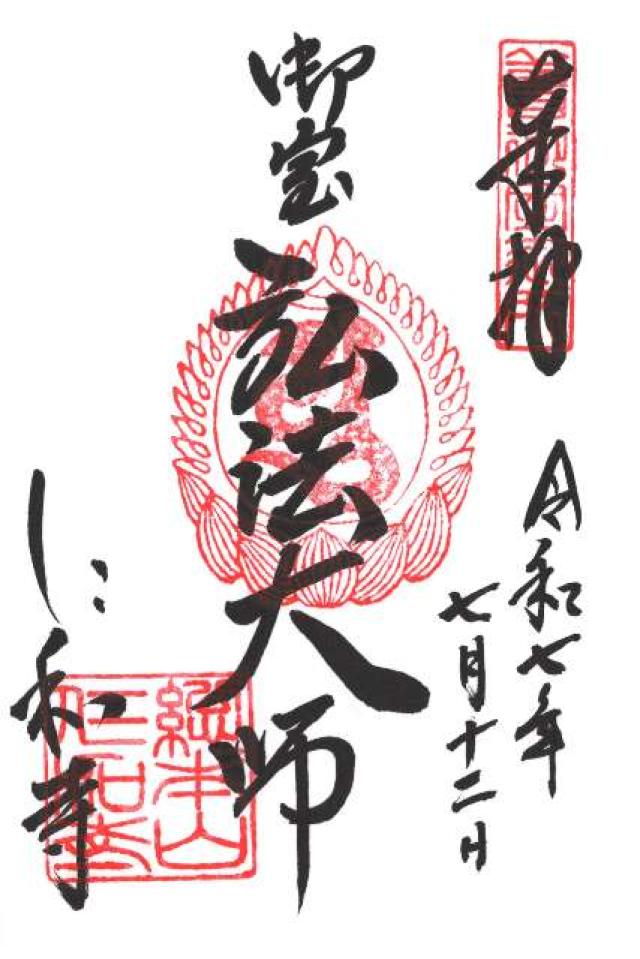 奉拝
令和七年
七月十二日
御宝
弘法大師
仁和寺
總本山
仁和寺